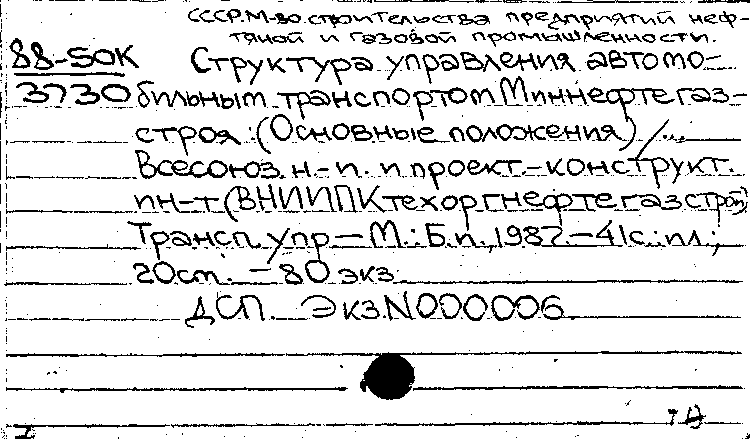 СССР. М-во строительства предприятий неф-
тяной и газовой промышленности.
88-50К Структура управления автомо-
3730 бильным транспортом Миннефтегаз-
строя: (Основные положения) /...
Всесоюз. н.-и. и проект.-конструкт.
ин-т (ВНИИПКтехоргнефтегазстрой),
Трансп. упр. — М.: Б.и., 1987. — 41с.: ил.;
20см. — 80 экз.
ДСП. Экз. N000006.